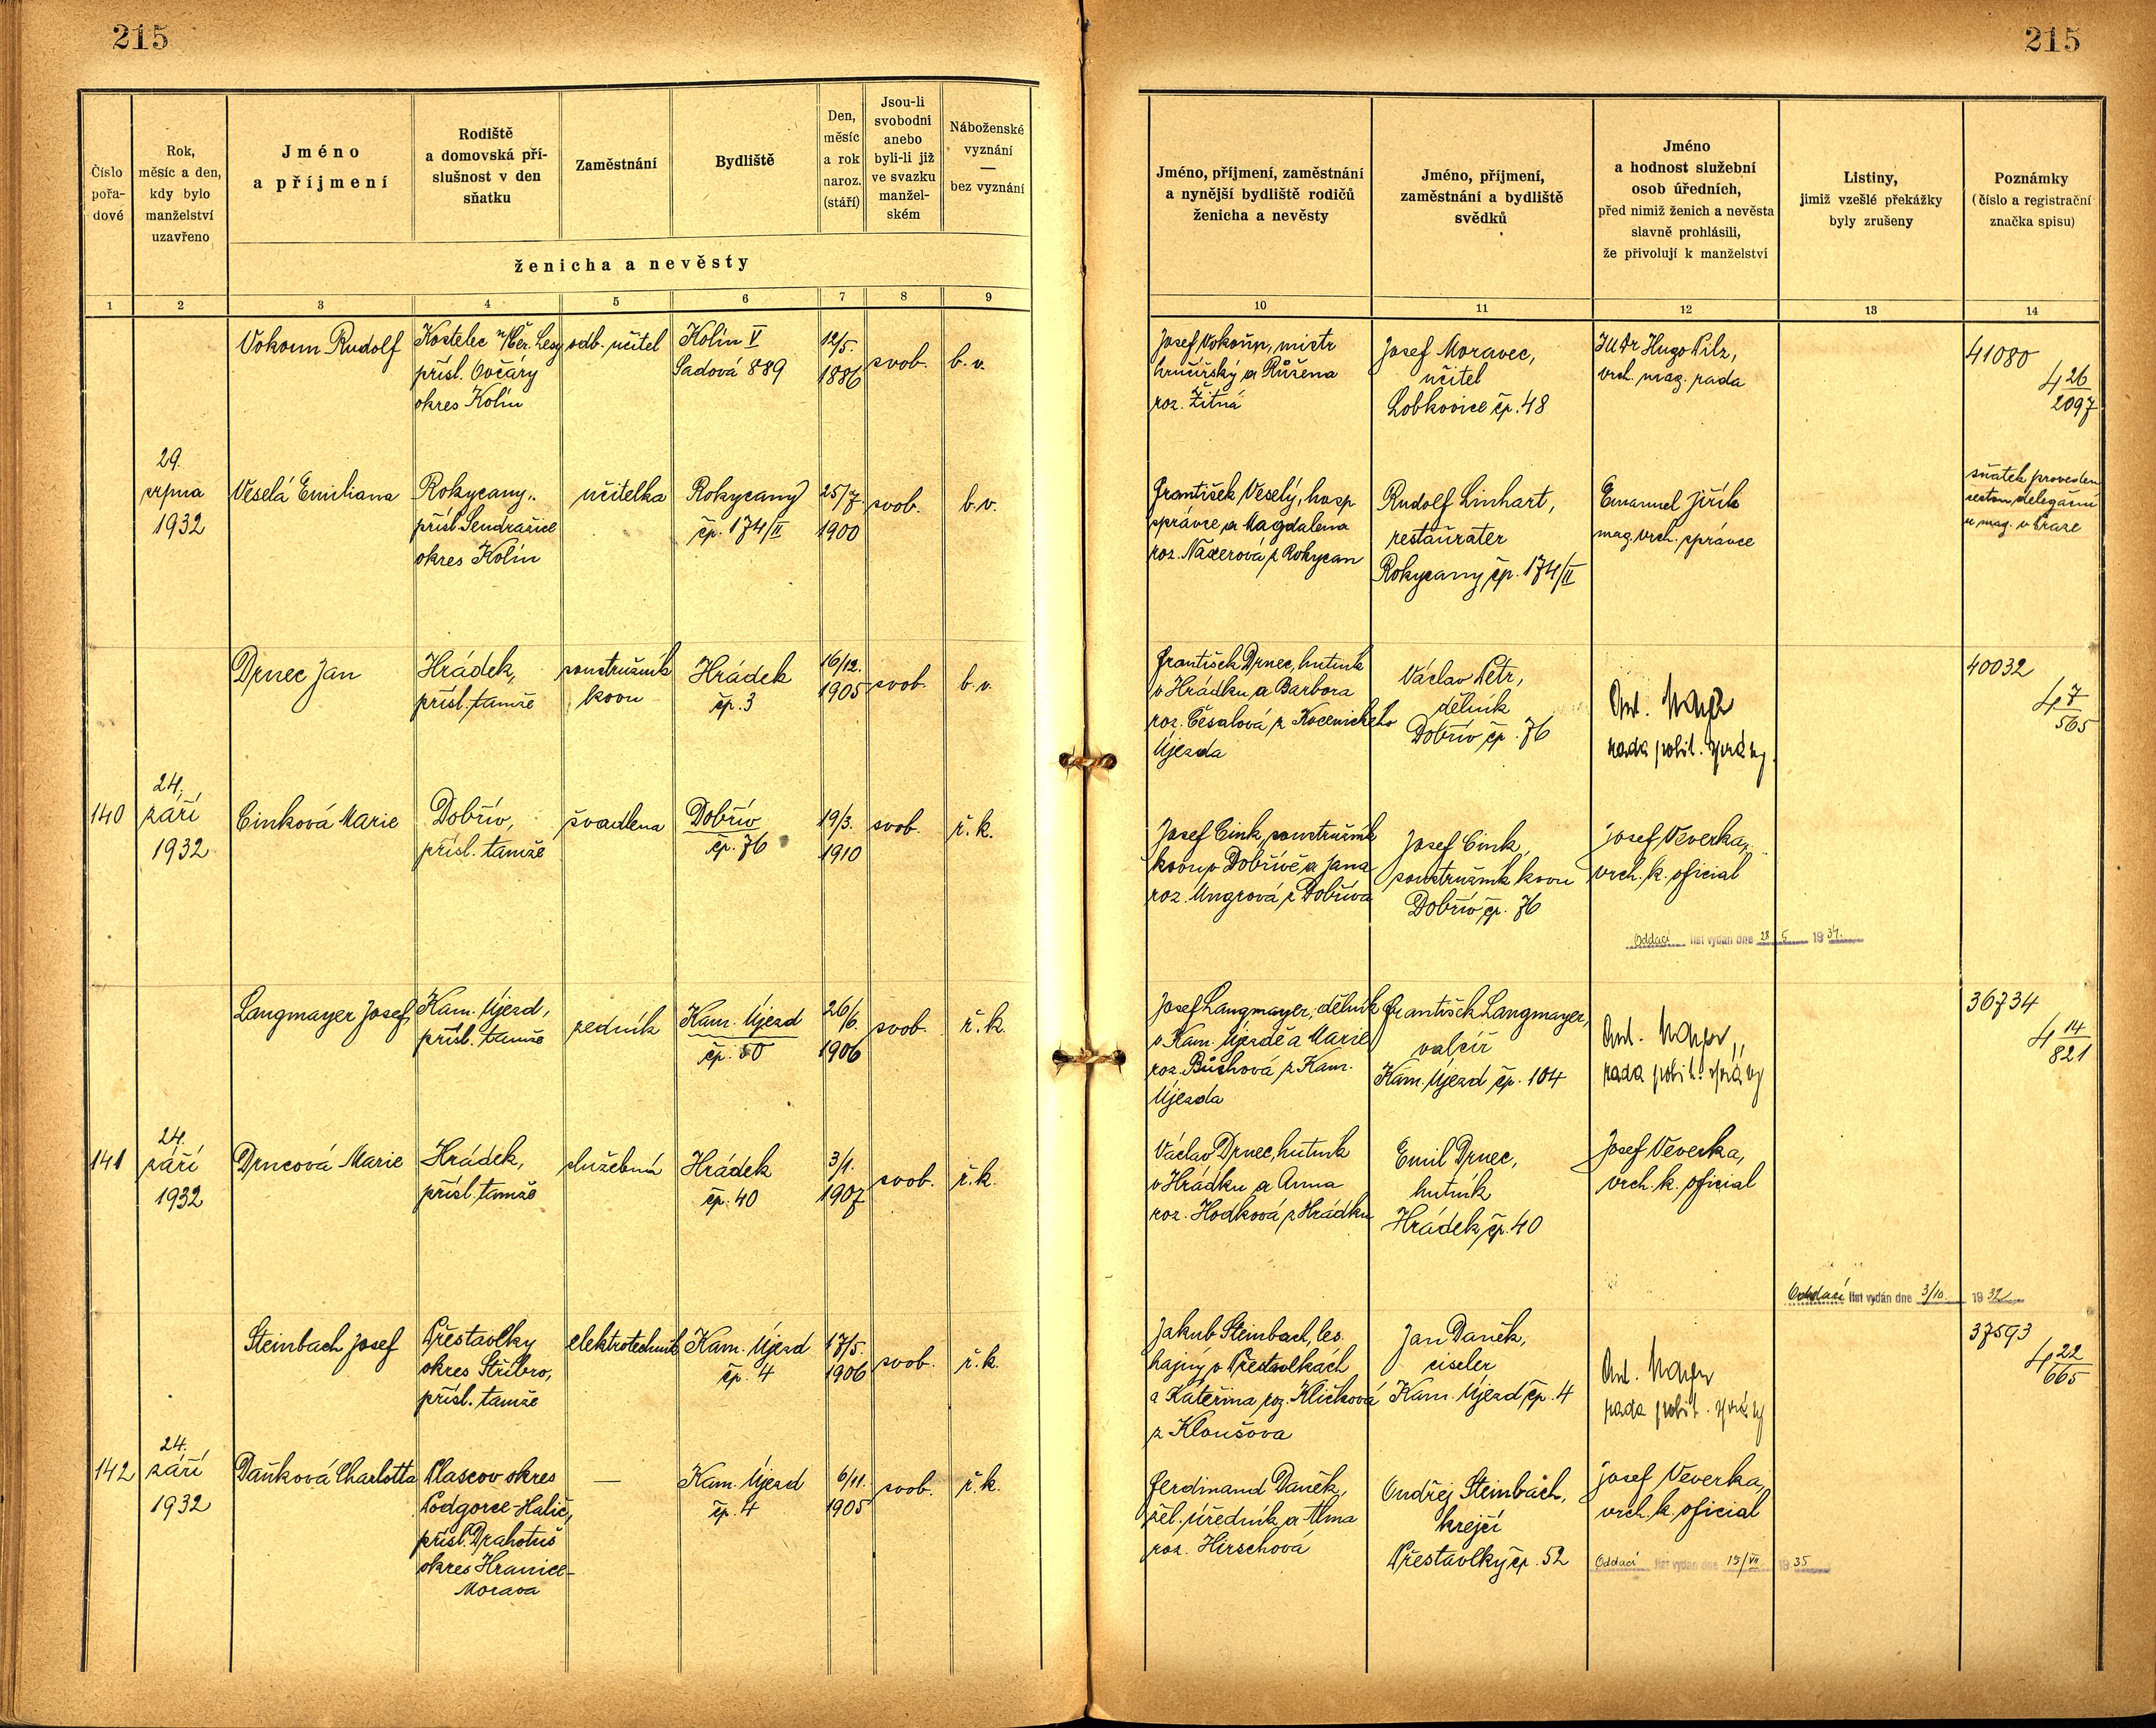 215
215
Číslo
pořa-
dové
Rok,
měsíc a den,
kdy bylo
manželství
uzavřeno
Jméno
a příjmení
Rodiště
a domovská pří-
slušnost v den
sňatku
Zaměstnání
Bydliště
Den,
měsíc
a rok
naroz.
(stáří)
Jsou-li
svobodni
anebo
byli-li již
ve svazku
manžel-
ském
Náboženské
vyznání
—
bez vyznání
ženicha a nevěsty
1 2 3 4 5 6 7 8 9
Jméno, příjmení, zaměstnání
a nynější bydliště rodičů
ženicha a nevěsty
Jméno, příjmení,
zaměstnání a bydliště
svědků
Jméno
a hodnost služební
osob úředních,
před nimiž ženich a nevěsta
slavně prohlásili,
že přivolují k manželství
Listiny,
jimiž vzešlé překážky
byly zrušeny
Poznámky
(číslo a registrační
značka spisu)
10 11 12 13 14
Vokoun Rudolf
Kostelec n/Čer. Lesy
přísl. Ovčáry
okres Kolín
odb. učitel
Kolín V
Sadová 889
12/5.
1886
svob.
b. v.
Josef Vokoun, mistr
hrnčířský a Růžena
roz. Žitná
Josef Moravec,
učitel
Lobkovice čp. 48
JUDr Hugo Pilz,
vrch. mag. rada
41080
4 26
2097
29.
srpna
1932
Veselá Emiliana
Rokycany,
přísl. Sendražice
okres Kolín
učitelka
Rokycany
čp. 174/II
25/7
1900
svob.
b. v.
František Veselý, hosp.
správce a Magdalena
roz. z Rokycan
Rudolf Linhart,
restauratér
Rokycany čp. 174/II
Emanuel Jiřík
mag. vrch. správce
sňatek proveden
cestou delegační
u mag. v Praze
Drnec Jan
Hrádek,
přísl. tamže
soustružník
kovu
Hrádek
čp. 3
16/12.
1905
svob.
b. v.
František Drnec, hutník
v Hrádku a Barbora
roz. Česalová z Kocenického
Újezda
Václav Petr,
dělník
Dobřív čp. 76
Ant. Mayer
rada polit. správy
40032
4 7
565
140
24.
září
1932
Cinková Marie
Dobřív,
přísl. tamže
švadlena
Dobřív
čp. 76
19/3.
1910
svob.
ř. k.
Josef Cink, soustružník
kovu v Dobřívě a Jana
roz. Ungrová z Dobříva
Josef Cink,
soustružník kovu
Dobřív čp. 76
Josef Veverka,
vrch. k. oficial
Oddací list vydán dne 28 5 1934.
Langmayer Josef
Kam. Újezd,
přísl. tamže
zedník
Kam. Újezd
čp. 50
26/6.
1906
svob.
ř. k.
Josef Langmayer, dělník
v Kam. Újezdě a Marie
roz. Bůchová z Kam.
Újezda
František Langmayer,
valcíř
Kam. Újezd čp. 104
Ant. Mayer,
rada polit. správy
36734
4 14
821
141
24.
září
1932
Drncová Marie
Hrádek,
přísl. tamže
služebná
Hrádek
čp. 40
3/1.
1907
svob.
ř. k.
Václav Drnec, hutník
v Hrádku a Anna
roz. Hodková z Hrádku
Emil Drnec,
hutník
Hrádek čp. 40
Josef Veverka,
vrch. k. oficial
Oddací list vydán dne 3/10. 1932
Steinbach Josef
Přestavlky
okres Stříbro,
přísl. tamže
elektrotechnik
Kam. Újezd
čp. 4
17/5.
1906
svob.
ř. k.
Jakub Steinbach, les.
hajný v Přestavlkách
a Kateřina roz. Kličková
z Kloušova
Jan Daněk,
ciseler
Kam. Újezd čp. 4
Ant. Mayer
rada polit. správy
37593
4 22
665
142
24.
září
1932
Daňková Charlotta
Plascov okres
Podgorce-Halič,
přísl. Drahotuš
okres Hranice-
Morava
—
Kam. Újezd
čp. 4
6/11.
1905
svob.
ř. k.
Ferdinand Daněk,
žel. úředník a Alma
roz. Hirschová
Ondřej Steinbach,
krejčí
Přestavlky čp. 52
Josef Veverka,
vrch. k. oficial
Oddací list vydán dne 15/VII 1935